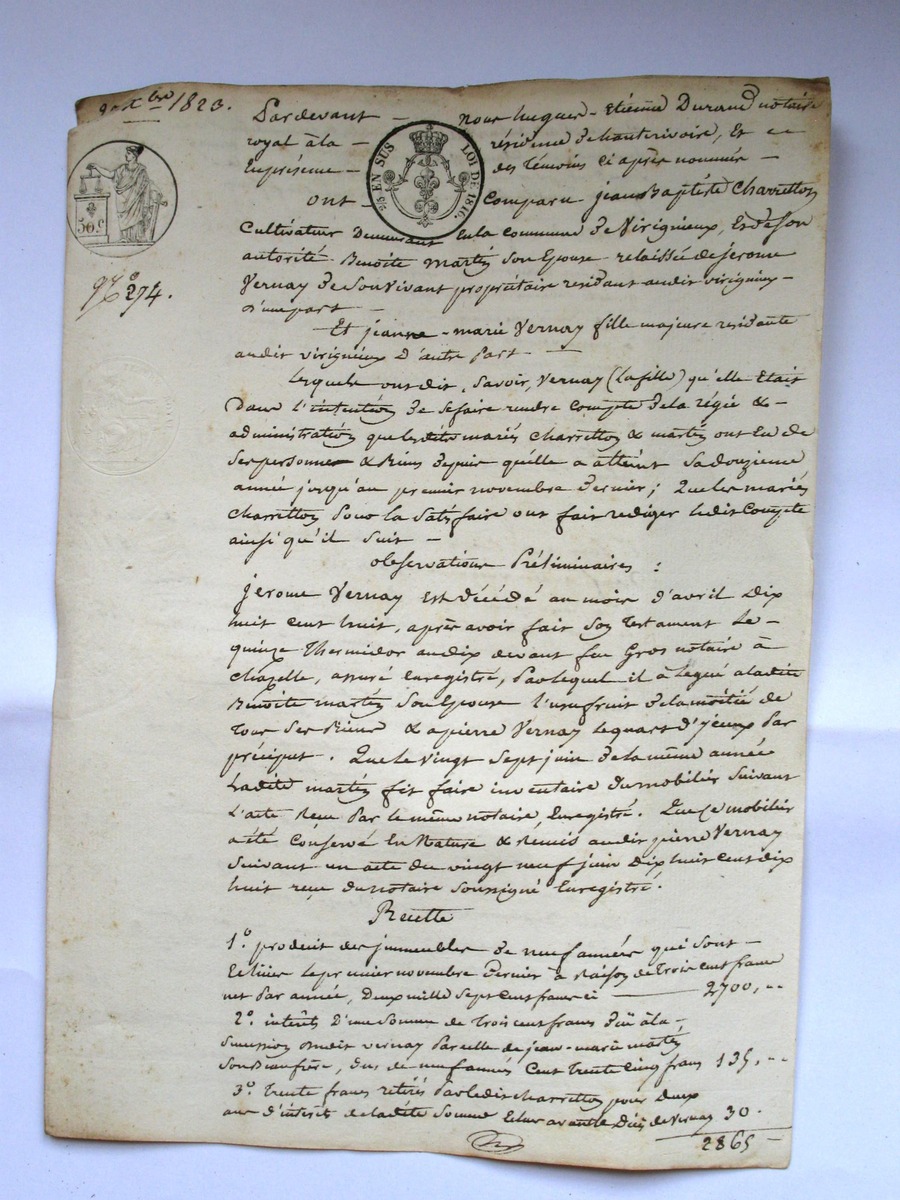 Xbre 1823.
Pardevant nous hugues-Etienne Durand notaire
royal à la résidence de hauterivoire, Et en
la présence des témoins ci après nommés
EN SUS LOI DE 1816.
50.c
ont Comparu jean Baptiste Charretton
Cultivateur Demeurant En la Commune De Virigneux, Et de son
autorité Benoite martin son Epouse relaissée de jerome
Vernay De son Vivant propriétaire residant audit virigneux
d'une part
No 274.
Et jeanne-marie Vernay fille majeure residante
audit virigneux D'autre Part
Lesquels ont dit, Savoir, Vernay (la fille) qu'elle Etait
Dans L'intention De se faire rendre Compte De la régie &
administration que lesdits mariés Charretton & martin ont Eu de
Ses personne & Biens Depuis qu'elle a atteint Sa douzieme
année jusqu'au premier novembre Dernier; Que les mariés
Charretton pour la Satisfaire ont fait rediger ledit Compte
ainsi qu'il Suit
observations Préliminaires :
jerome Vernay Est Décédé au mois d'avril Dix
huit cent huit, après avoir fait Son Testament le
quinze Thermidor an dix devant feu Gros notaire à
Chazelle, assuré Enregistré, Par lequel il a légué a ladite
Benoite martin Son Epouse l'usufruit De la moitié de
Tous Ses Biens & a pierre Vernay le quart D'iceux Par
précіput. Que le Vingt Sept juin De la même année
Ladite martin fit faire inventaire Du mobilier Suivant
L'acte Reçu Par le même notaire, Enregistré. Que Ce mobilier
a été Conservé En Nature & Remis audit pierre Vernay
Suivant un acte du vingt neuf juin Dix huit Cent dix
huit reçu Du notaire Soussigné Enregistré.
Recette
1.o produit des jmmeubles De neuf années qui Sont
Echues le premier novembre Dernier à Raison de Trois Cent francs
net Par année, Deux mille Sept Cent francs ci 2700, "
2.o intérêts D'une Somme de Trois cent francs Dûs à la
Succession Dudit Vernay Par celle de jean-marie martin
Son Beau frère, Dus de neuf années Cent Trente Cinq francs 135, "
3.o Trente francs retirés Par ledit Charretton pour Deux
ans d'intérêt de ladite Somme Echus avant le Décès de Vernay 30.
2865